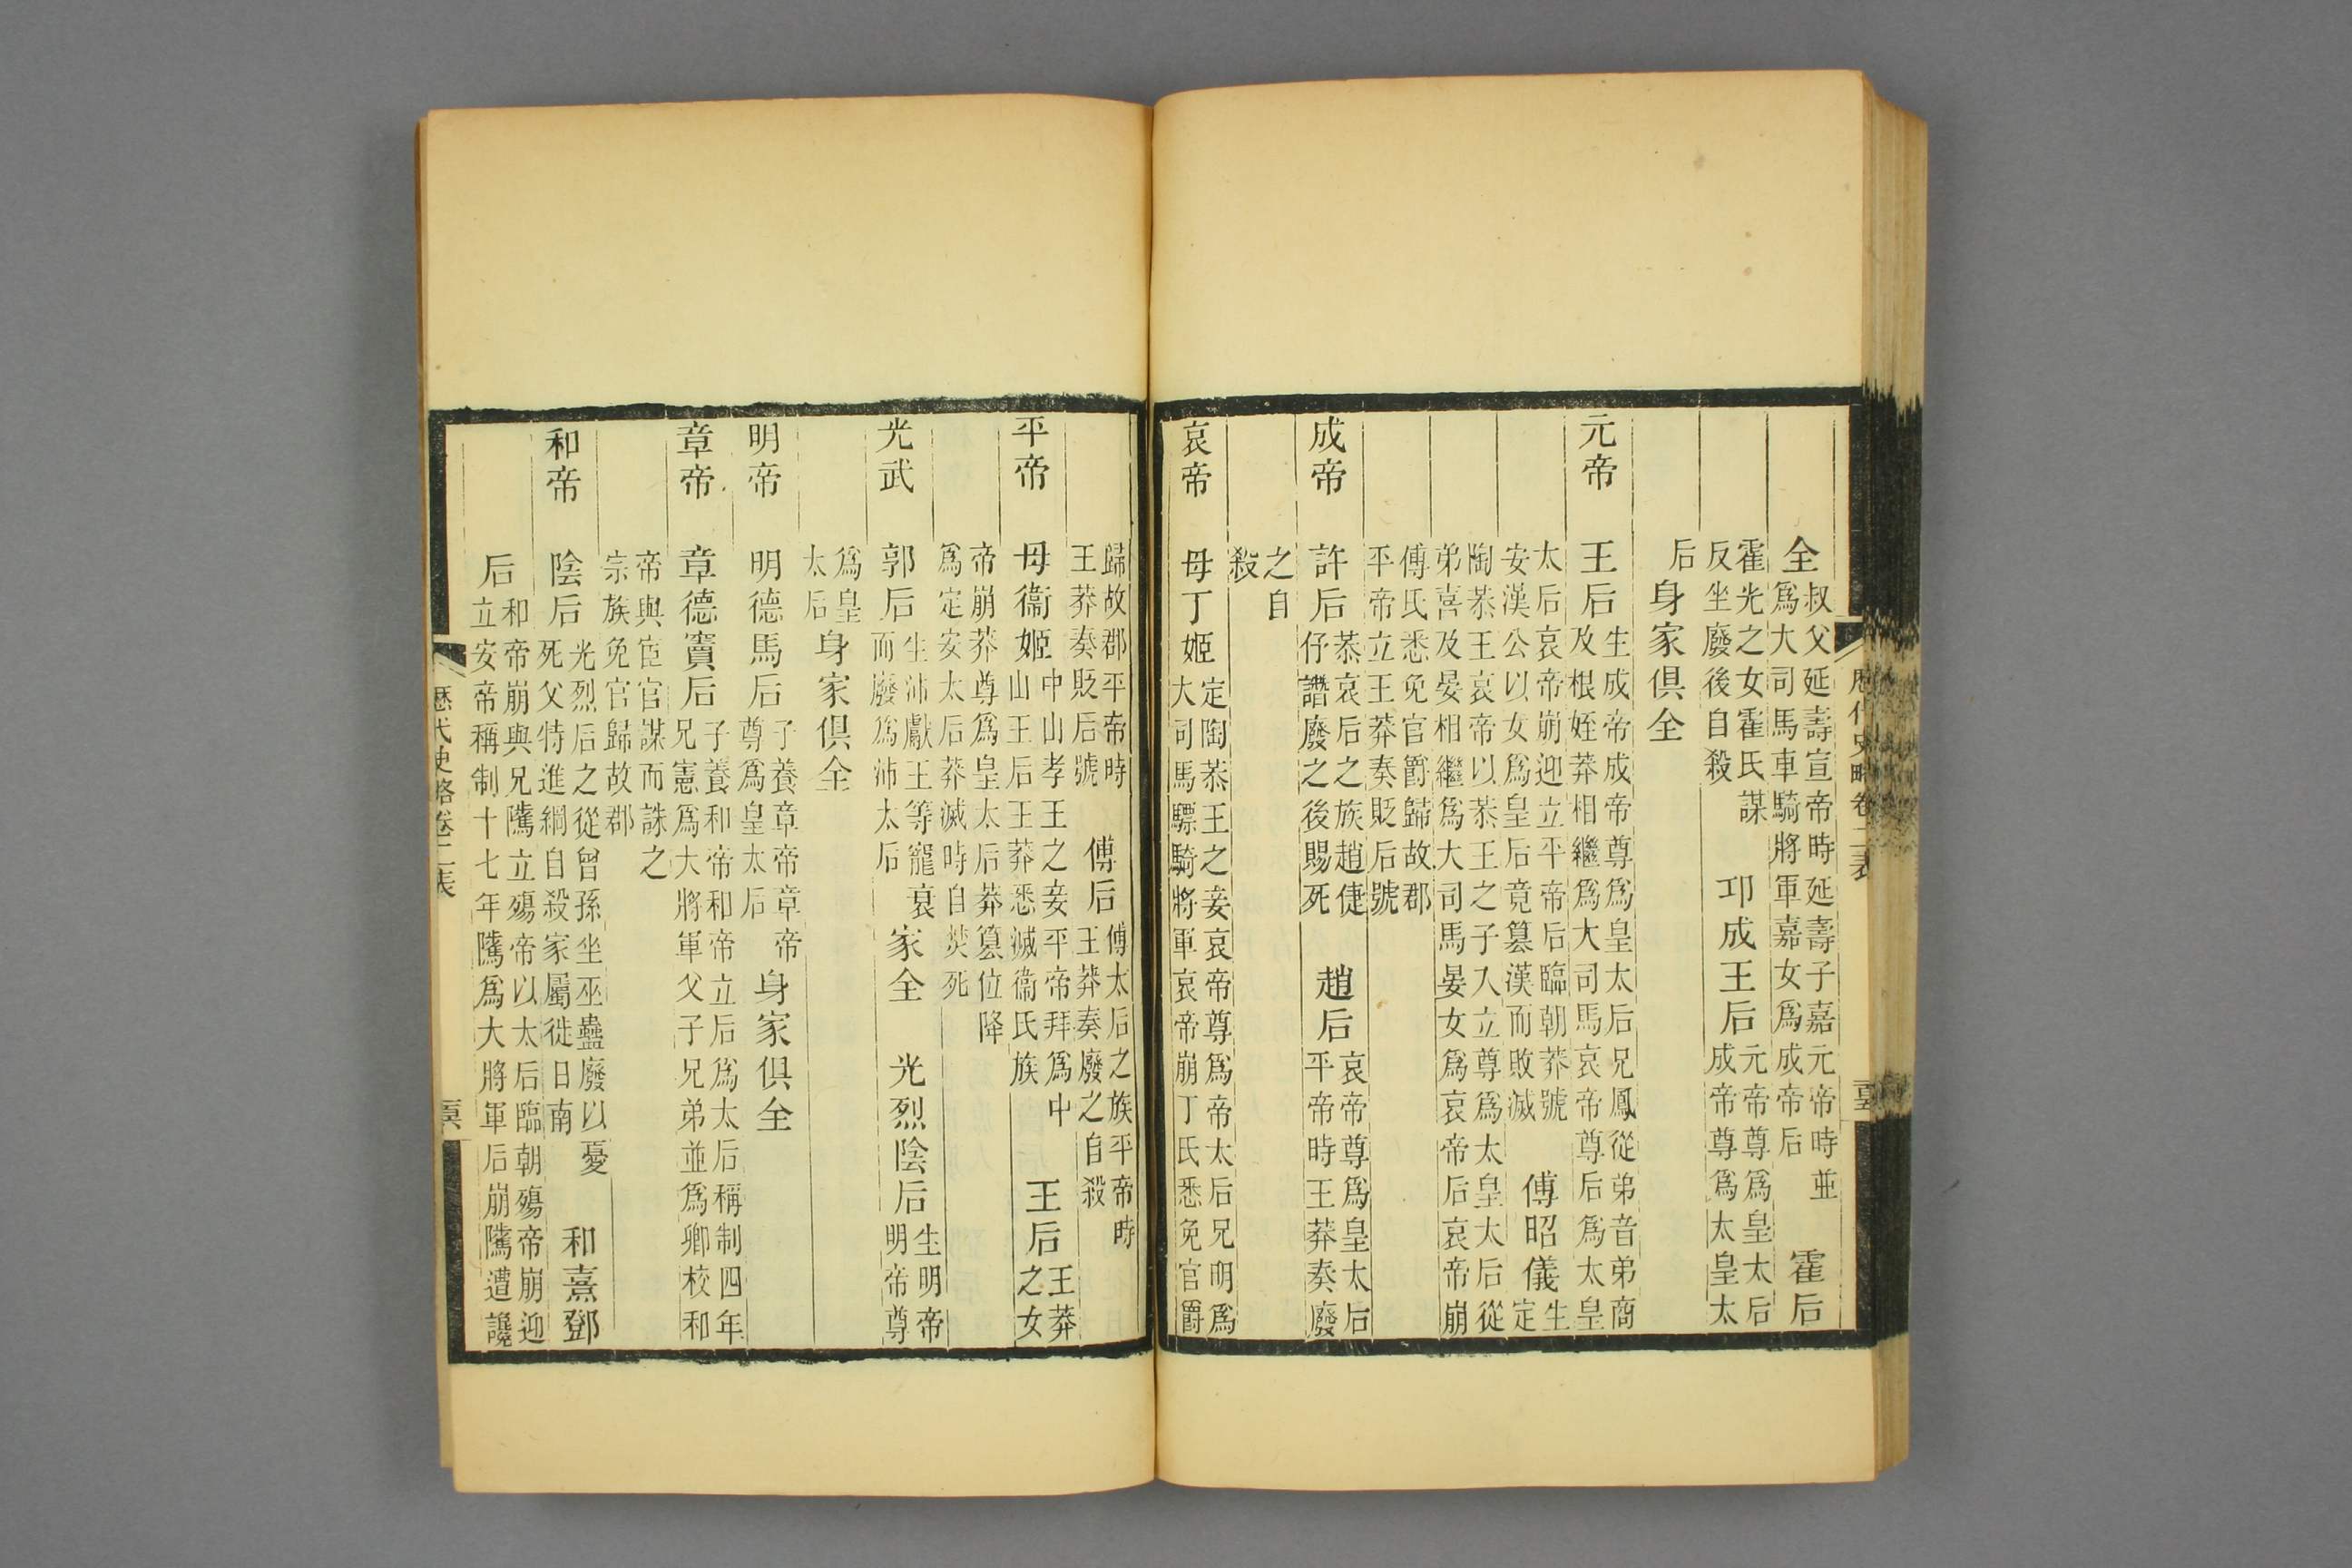 歷代史略卷二表
全
叔父延壽宣帝時延壽子嘉元帝時並
爲大司馬車騎將軍嘉女爲成帝后
霍后
霍光之女霍氏謀
反坐廢後自殺
卭成王后
元帝尊爲皇太后
成帝尊爲太皇太
后
身家俱全
元帝
王后
生成帝成帝尊爲皇太后兄鳳從弟音弟商
及根姪莽相繼爲大司馬哀帝尊后爲太皇
太后哀帝崩迎立平帝后臨朝莽號
安漢公以女爲皇后竟篡漢而敗滅
傅昭儀
生
定
陶恭王哀帝以恭王之子入立尊爲太皇太后從
弟喜及晏相繼爲大司馬晏女爲哀帝后哀帝崩
傅氏悉免官爵歸故郡
平帝立王莽奏貶后號
成帝
許后
恭哀后之族趙倢
伃譖廢之後賜死
趙后
哀帝尊爲皇太后
平帝時王莽奏廢
之自
殺
哀帝
母丁姬
定陶恭王之妾哀帝尊爲帝太后兄明爲
大司馬驃騎將軍哀帝崩丁氏悉免官爵
歸故郡平帝時
王莽奏貶后號
傅后
傅太后之族平帝時
王莽奏廢之自殺
平帝
母衞姬
中山孝王之妾平帝拜爲中
山王后王莽悉滅衞氏族
王后
王莽
之女
帝崩莽尊爲皇太后莽篡位降
爲定安太后莽滅時自焚死
光武
郭后
生沛獻王等寵衰
而廢爲沛太后
家全
光烈陰后
生明帝
明帝尊
爲皇
太后
身家俱全
明帝
明德馬后
子養章帝章帝
尊爲皇太后
身家俱全
章帝
章德竇后
子養和帝和帝立后爲太后稱制四年
兄憲爲大將軍父子兄弟並爲卿校和
帝與宦官謀而誅之
宗族免官歸故郡
和帝
陰后
光烈后之從曾孫坐巫蠱廢以憂
死父特進綱自殺家屬徙日南
和熹鄧
后
和帝崩與兄騭立殤帝以太后臨朝殤帝崩迎
立安帝稱制十七年騭爲大將軍后崩騭遭讒
歷代史略卷二表